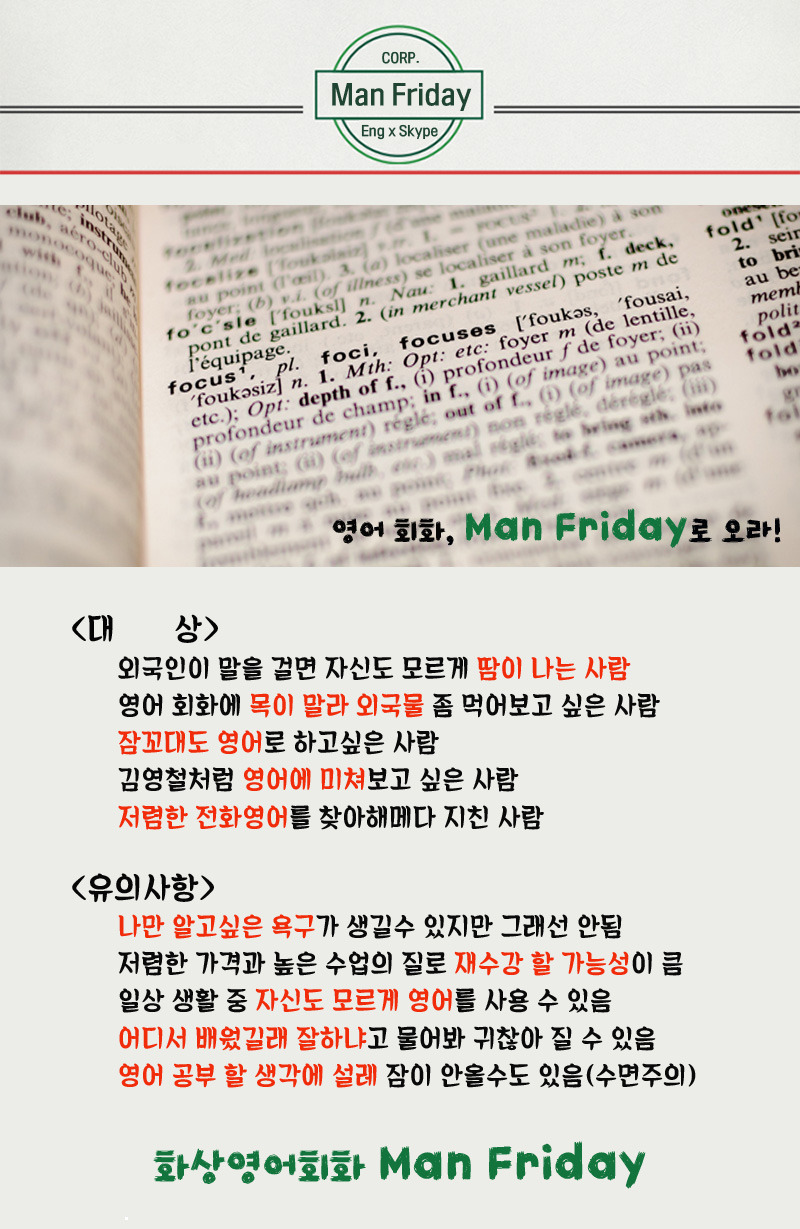 CORP.
Man Friday
Eng x Skype
club, aéro-club
monocoque
2. Med: localisation
focalize ['foukəlaiz] v.tr. 1.
au point (l'œil). 3. (a) localiser (une maladie) à son
foyer; (b) v.i. (of illness) se localiser à son foyer.
fo'c's'le ['fouksl] n. Nau: 1. gaillard m; f. deck,
pont de gaillard. 2. (in merchant vessel) poste m de
l'équipage.
focus¹, pl. foci, focuses ['foukəs, 'fousai,
'foukəsiz] n. 1. Mth: Opt: etc: foyer m (de lentille,
etc.); Opt: depth of f., (i) profondeur f de foyer; (ii)
profondeur de champ; in f., (i) (of image) au point;
(ii) (of instrument) réglé; out of f., (i) (of image) pas
au point; (ii) (of instrument) non réglé, déréglé; (iii)
(of headlamp bulb, etc.) mal réglé; to bring sth. into
f., mettre qch. au point; Phot: fixed-f. camera, ap-
fold¹
2.
to
au
fold²
영어 회화, Man Friday로 오라!
<대 상>
외국인이 말을 걸면 자신도 모르게 땀이 나는 사람
영어 회화에 목이 말라 외국물 좀 먹어보고 싶은 사람
잠꼬대도 영어로 하고싶은 사람
김영철처럼 영어에 미쳐보고 싶은 사람
저렴한 전화영어를 찾아해메다 지친 사람
<유의사항>
나만 알고싶은 욕구가 생길수 있지만 그래선 안됨
저렴한 가격과 높은 수업의 질로 재수강 할 가능성이 큼
일상 생활 중 자신도 모르게 영어를 사용 수 있음
어디서 배웠길래 잘하냐고 물어봐 귀찮아 질 수 있음
영어 공부 할 생각에 설레 잠이 안올수도 있음(수면주의)
화상영어회화 Man Friday